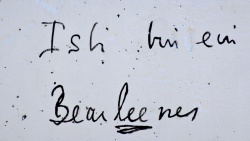 Ish bin ein
Bearleener